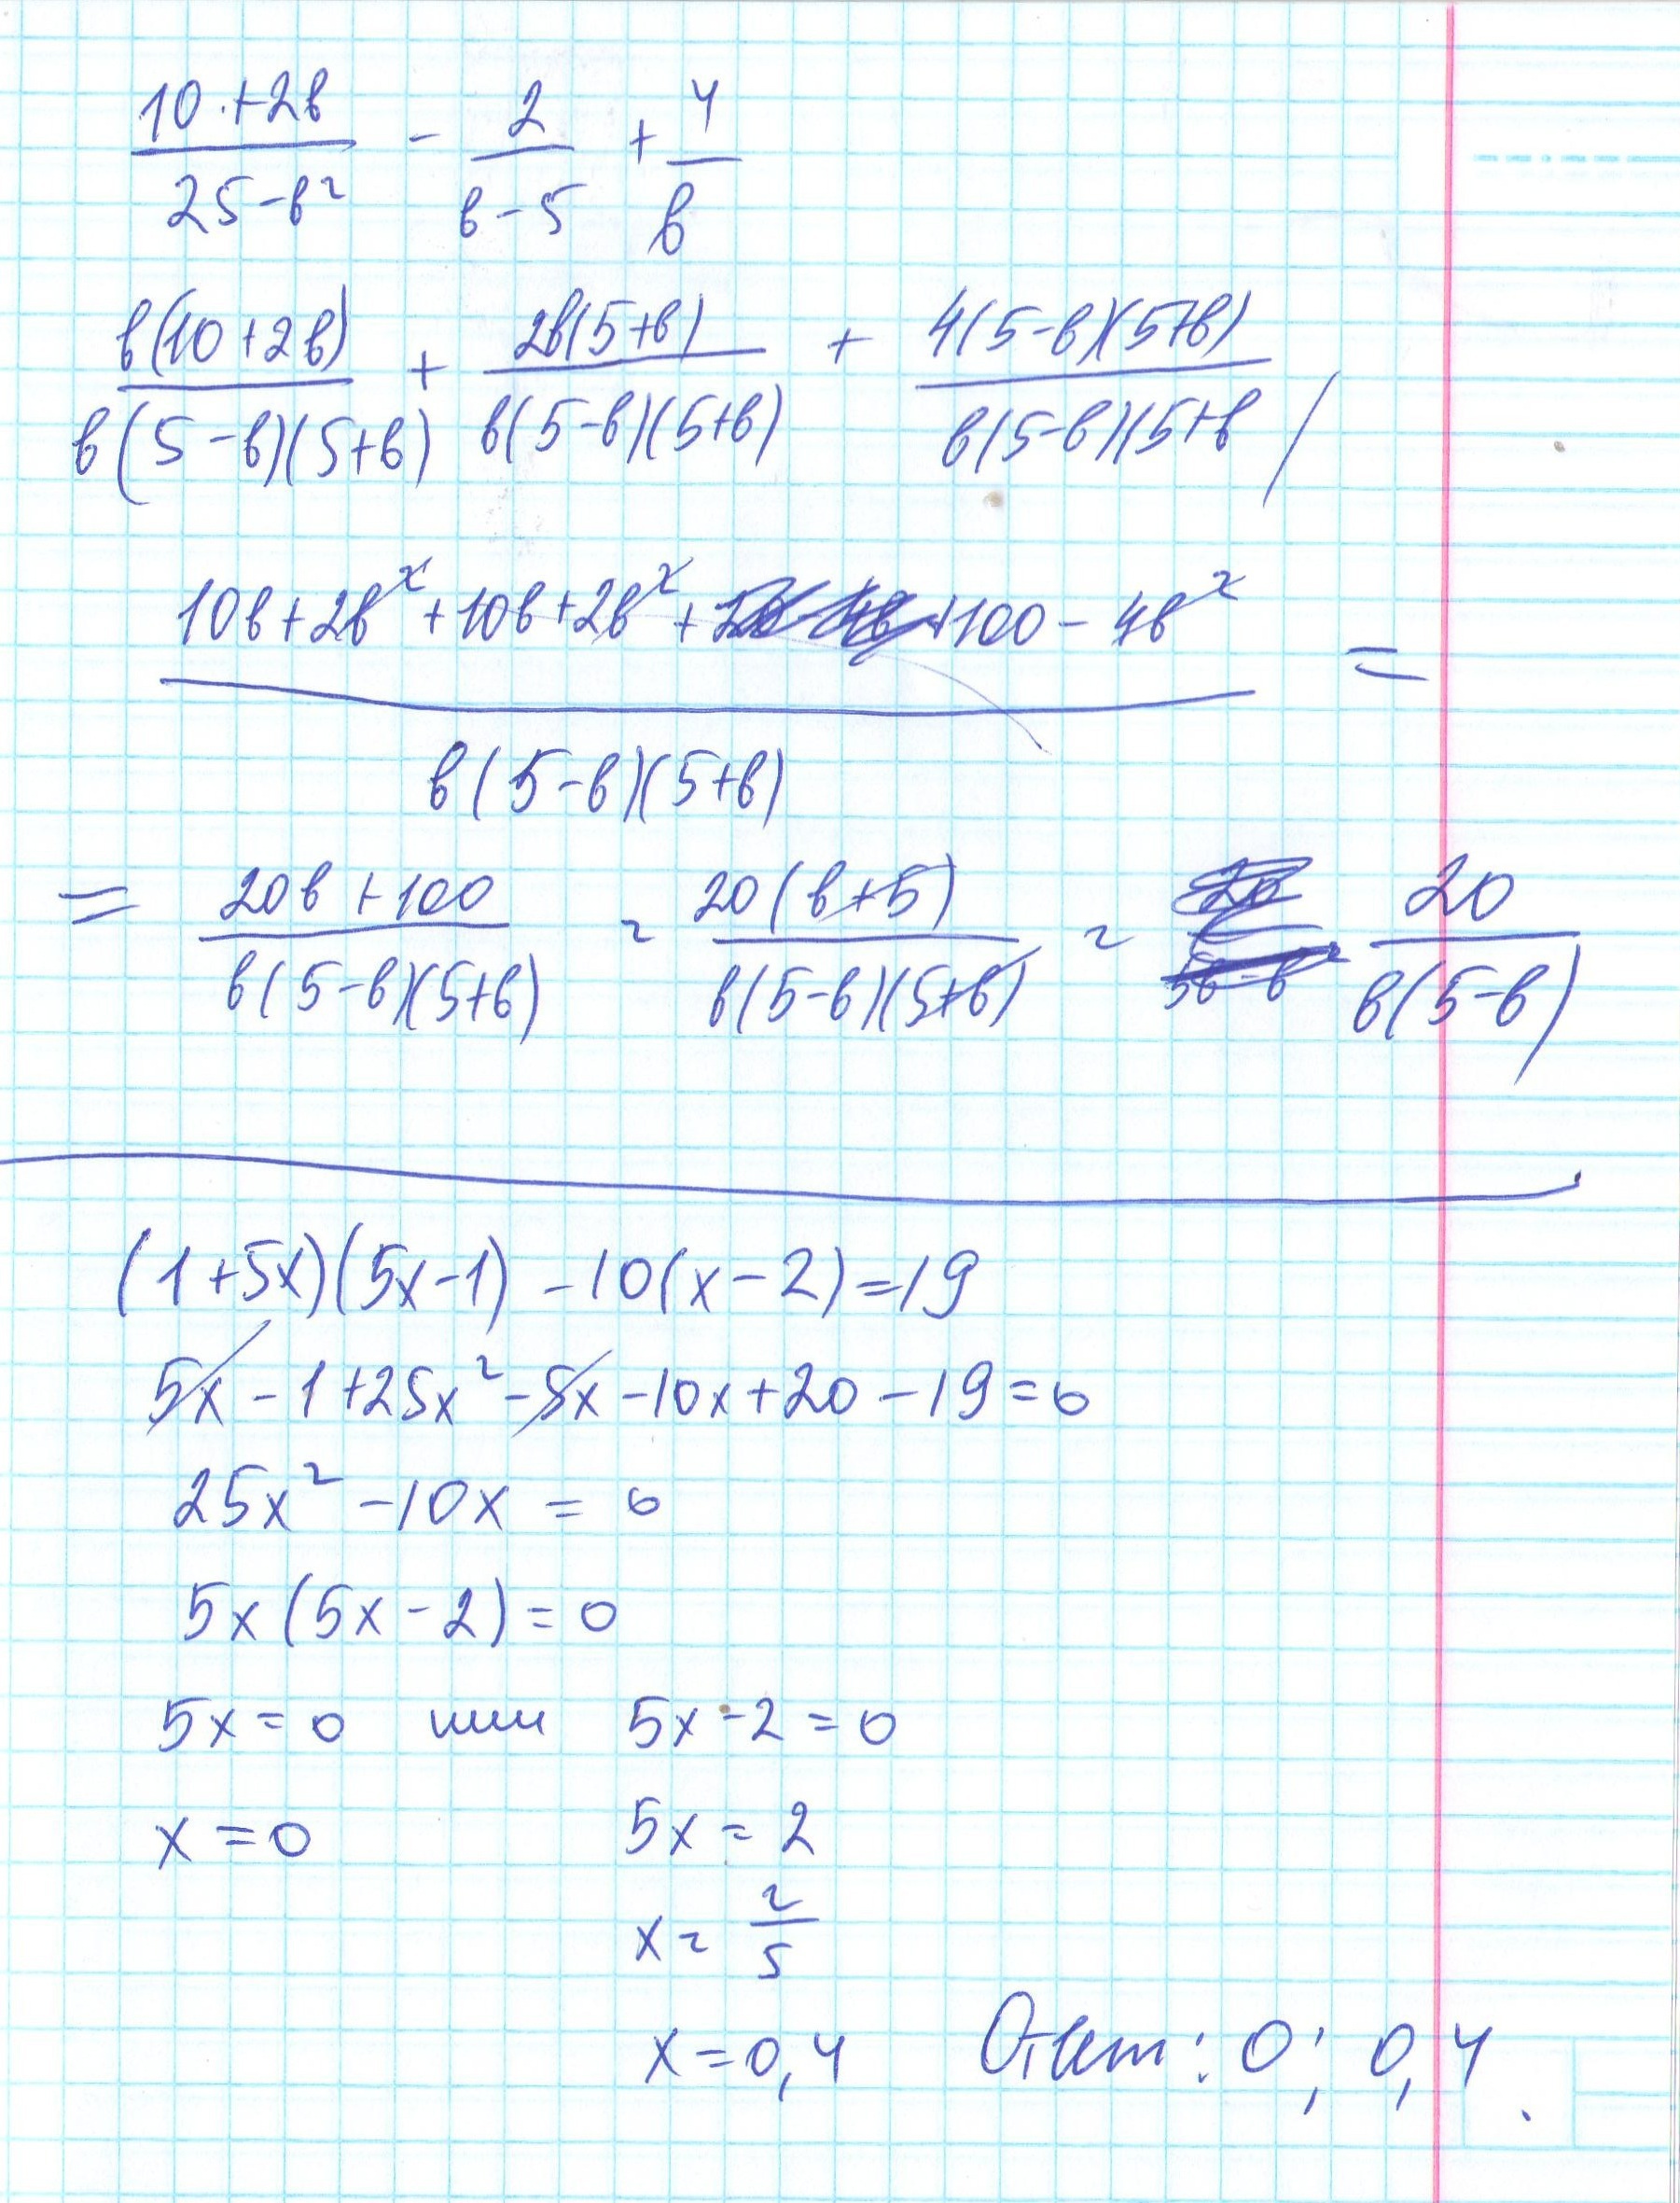 (10 + 2в)/(25 - в²) - 2/(в - 5) + 4/в
в(10 + 2в)/(в(5 - в)(5 + в)) + 2в(5 + в)/(в(5 - в)(5 + в)) + 4(5 - в)(5 + в)/(в(5 - в)(5 + в))
(10в + 2в² + 10в + 2в² + + 100 - 4в²)/(в(5 - в)(5 + в)) =
= (20в + 100)/(в(5 - в)(5 + в)) = 20(в + 5)/(в(5 - в)(5 + в)) = 20/(в(5 - в))
(1 + 5x)(5x - 1) - 10(x - 2) = 19
5x - 1 + 25x² - 5x - 10x + 20 - 19 = 0
25x² - 10x = 0
5x(5x - 2) = 0
5x = 0 или 5x - 2 = 0
x = 0 5x = 2
x = 2/5
x = 0,4 Ответ: 0; 0,4.